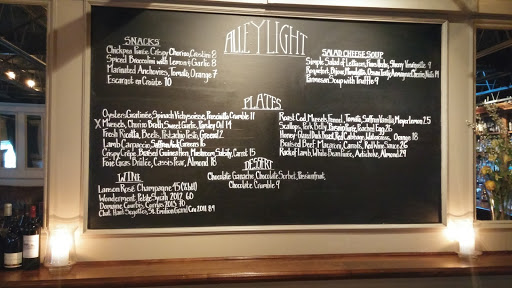 ALLEYLIGHT
SNACKS
Chickpea Panise, Crispy Chorizo, Crostini 8
Spiced Broccolini with Lemon & Garlic 8
Marinated Anchovies, Tomato, Orange 7
Escargot en Croûte 10
SALAD CHEESE SOUP
Simple Salad of Lettuces, Fines Herbs, Sherry Vinaigrette 9
Parmesan Soup with Truffle 9
PLATES
Oysters Gratinée, Spinach Vichyssoise, Prosciutto Crumble 11
X Mussels, Chorizo Broth, Sweet Garlic, Parsley Oil 14
Fresh Ricotta, Beets, Pistachio Pesto, Greens 12
Lamb Carpaccio, Saffron Aioli, Capers 16
Crispy Crêpe, Braised Guinea Hen, Mushroom Subtily, Carrot 15
Foie Gras Brûlée, Cassis Pear, Almond 18
Roast Cod, Mussels, Fennel, Tomato, Saffron Vanilla, Meyer Lemon 25
Scallops, Pork Belly, Poached Egg 26
Honey Glazed Duck Breast, Red Cabbage, Orange 28
Braised Beef, Macaroni, Carrots, Red Wine Sauce 26
Rack of Lamb, White Bean Purée, Artichoke, Almond 29
DESSERT
Chocolate Ganache, Chocolate Sorbet, Passionfruit
Chocolate Crumble 9
WINE
Lamson Rosé Champagne 95 (½ btl)
Wonderment Petite Syrah 2012 60
Domaine Courbis, Cornas 2013 70
Chat. Haut Segottes, St. Emilion Grand Cru 2011 89